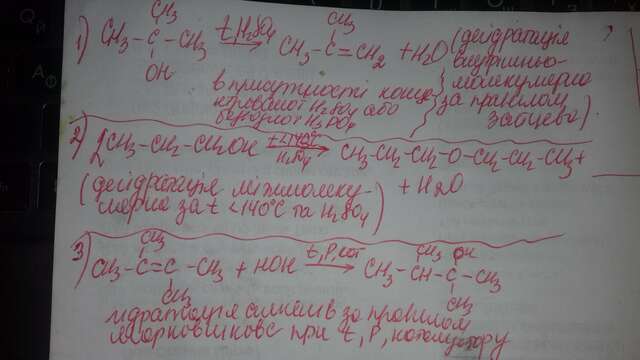 1) CH₃-C(CH₃)(OH)-CH₃ t, H₂SO₄→ CH₃-C(CH₃)=CH₂ + H₂O (дегідратація
внутрішньо-
молекулярна
за правилом
Зайцева)
в присутності конце
нтрованої H₂SO₄ або
безводної H₃PO₄
2) 2CH₃-CH₂-CH₂OH t<140° H₂SO₄→ CH₃-CH₂-CH₂-O-CH₂-CH₂-CH₃+
+ H₂O
(дегідратація міжмолеку-
лярна за t <140°C та H₂SO₄)
3) CH₃-C(CH₃)=C(CH₃)-CH₃ + HOH t, P, кат→ CH₃-CH(CH₃)-C(OH)(CH₃)-CH₃
гідратація алкенів за правилом
Марковникова при t, P, каталізатору